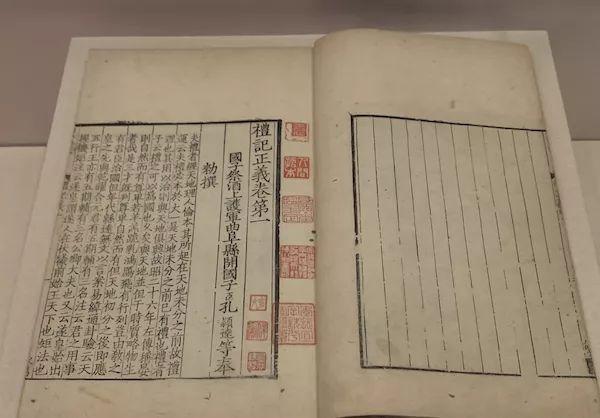 禮記正義卷第一
國子祭酒上護軍曲阜縣開國子臣孔穎達等奉
勑撰
夫禮者經天地理人倫本其所起在天地未分之前故禮
運云夫禮必本於大一是天地未分之前已有禮也禮者
理也其用以治則與天地俱興故昭二十六年左傳稱晏
子云禮之可以爲國也久矣與天地並但于時質略物生
則自然而有尊卑若羊羔跪乳鴻鴈飛有行列豈由教之
者哉是三才既判尊卑自然而有但天地初分之後即應
有君臣治國但年代緜遠無文以言案易緯通卦驗云天
皇之先與乾曜合元君有五期輔有三名注云君之用事
五行王亦有五期輔有三名公卿大夫也又云遂皇始出
握機矩注云遂皇謂遂人在伏犧前始王天下也矩法也